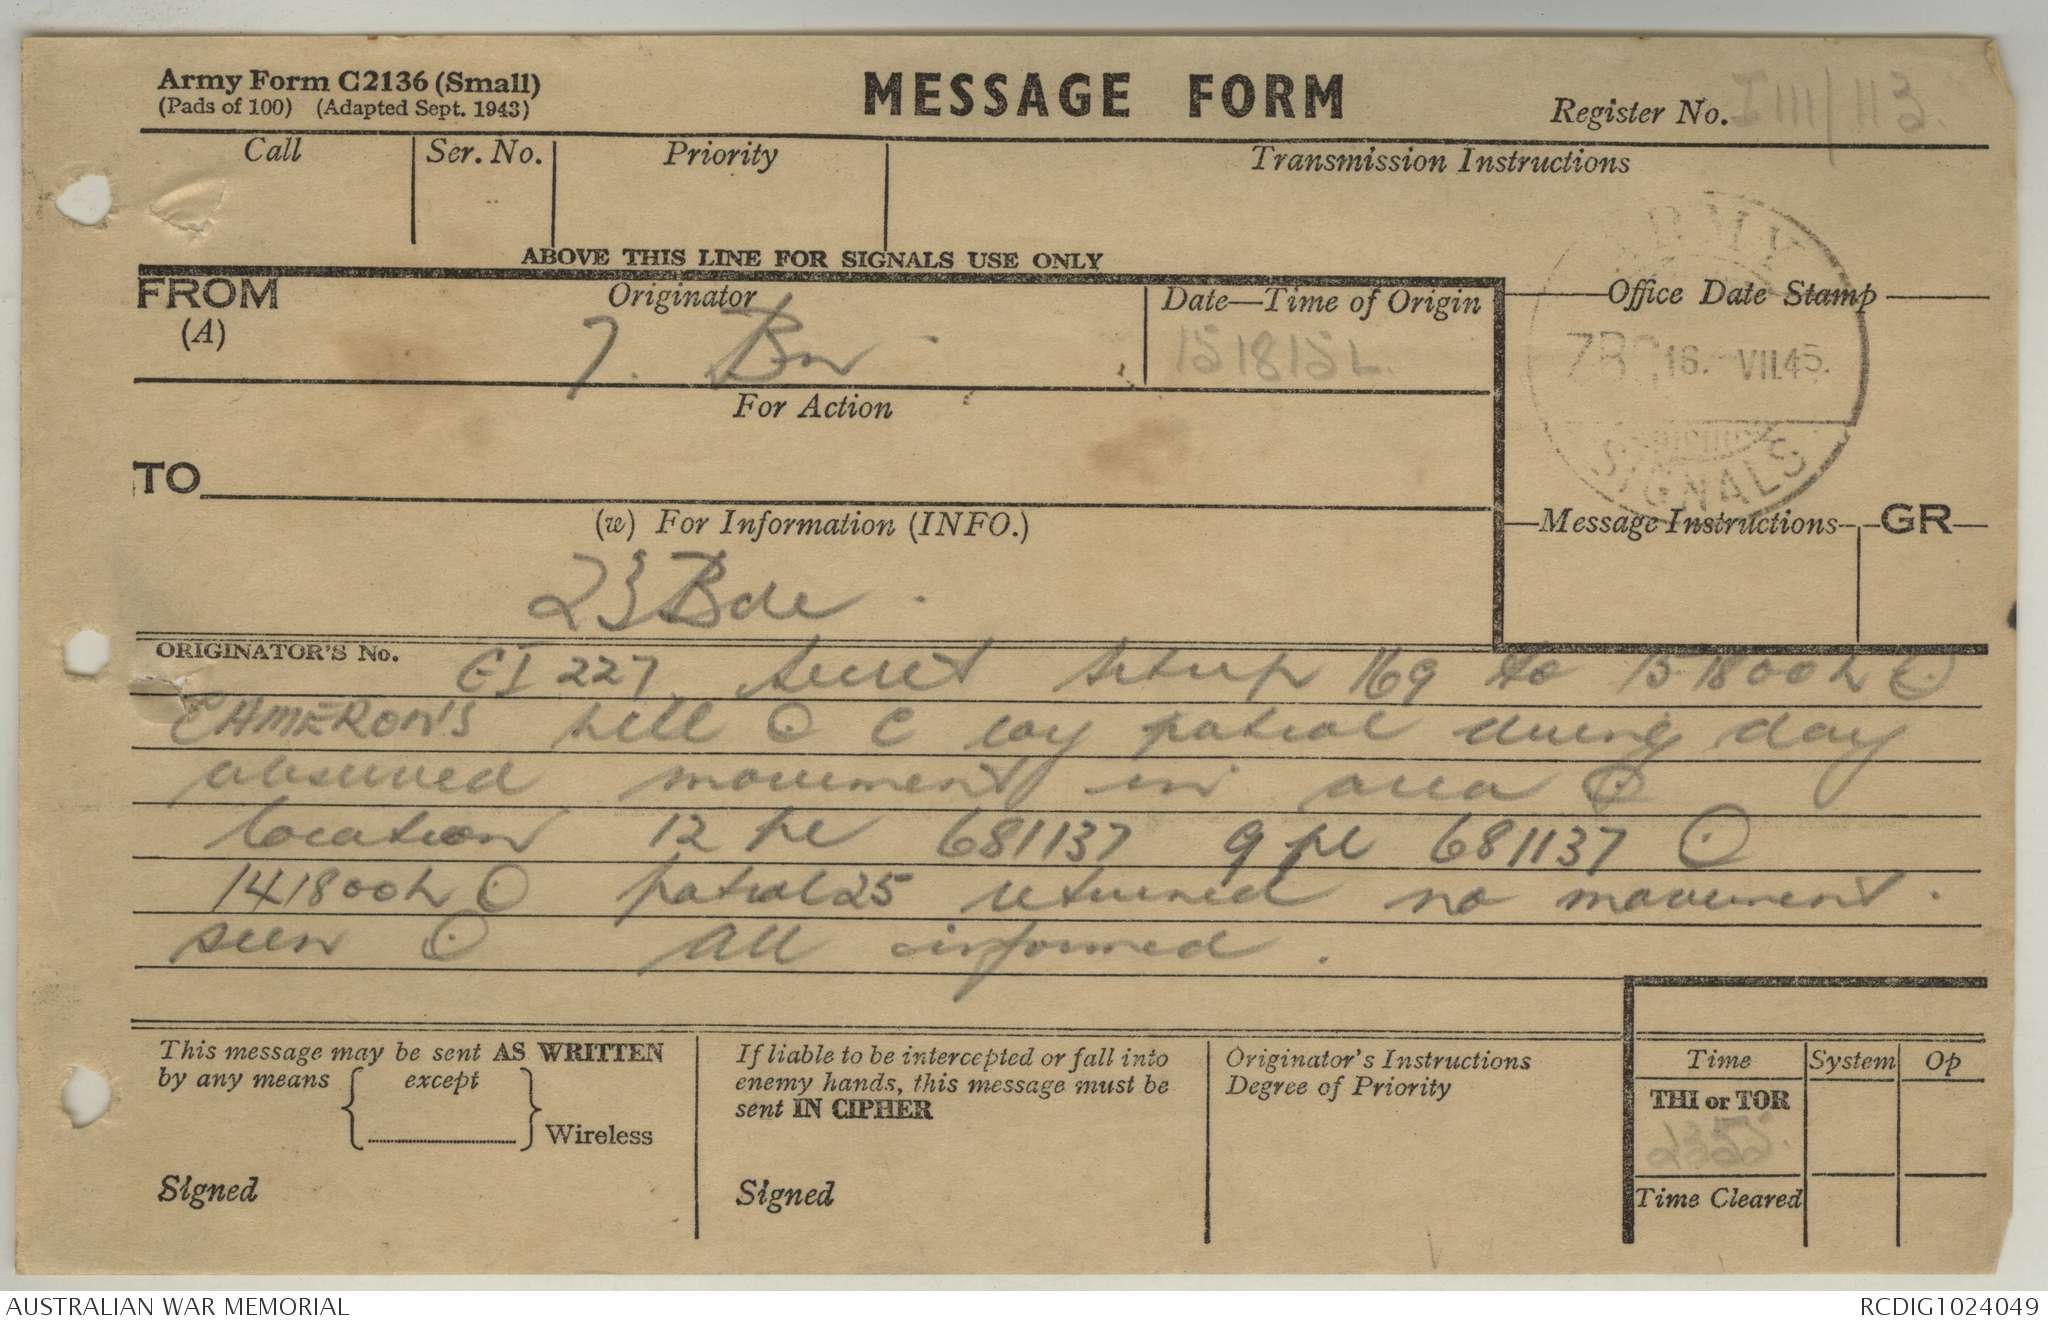 Army Form C2136 (Small)
(Pads of 100) (Adapted Sept. 1943)
MESSAGE FORM
Register No. I 111/113.
Call
Ser. No.
Priority
Transmission Instructions
ABOVE THIS LINE FOR SIGNALS USE ONLY
FROM
(A)
Originator
7. Bn
Date—Time of Origin
151815L.
Office Date Stamp
ARMY
16. VII.45.
SIGNALS
For Action
TO
(w) For Information (INFO.)
23 Bde.
Message Instructions
GR
ORIGINATOR'S No.
GI 227 Secret Sitrep 169 to 151800L ⊙
CAMERONS hill ⊙ C coy patrol during day
observed movement in area ⊙
location 12 pl 681137 9 pl 681137 ⊙
141800L ⊙ patrol 25 returned no movement.
seen ⊙ All informed.
This message may be sent AS WRITTEN
by any means { except
} Wireless
Signed
If liable to be intercepted or fall into
enemy hands, this message must be
sent IN CIPHER
Signed
Originator's Instructions
Degree of Priority
Time
System
Op
THI or TOR
2355.
Time Cleared
AUSTRALIAN WAR MEMORIAL
RCDIG1024049